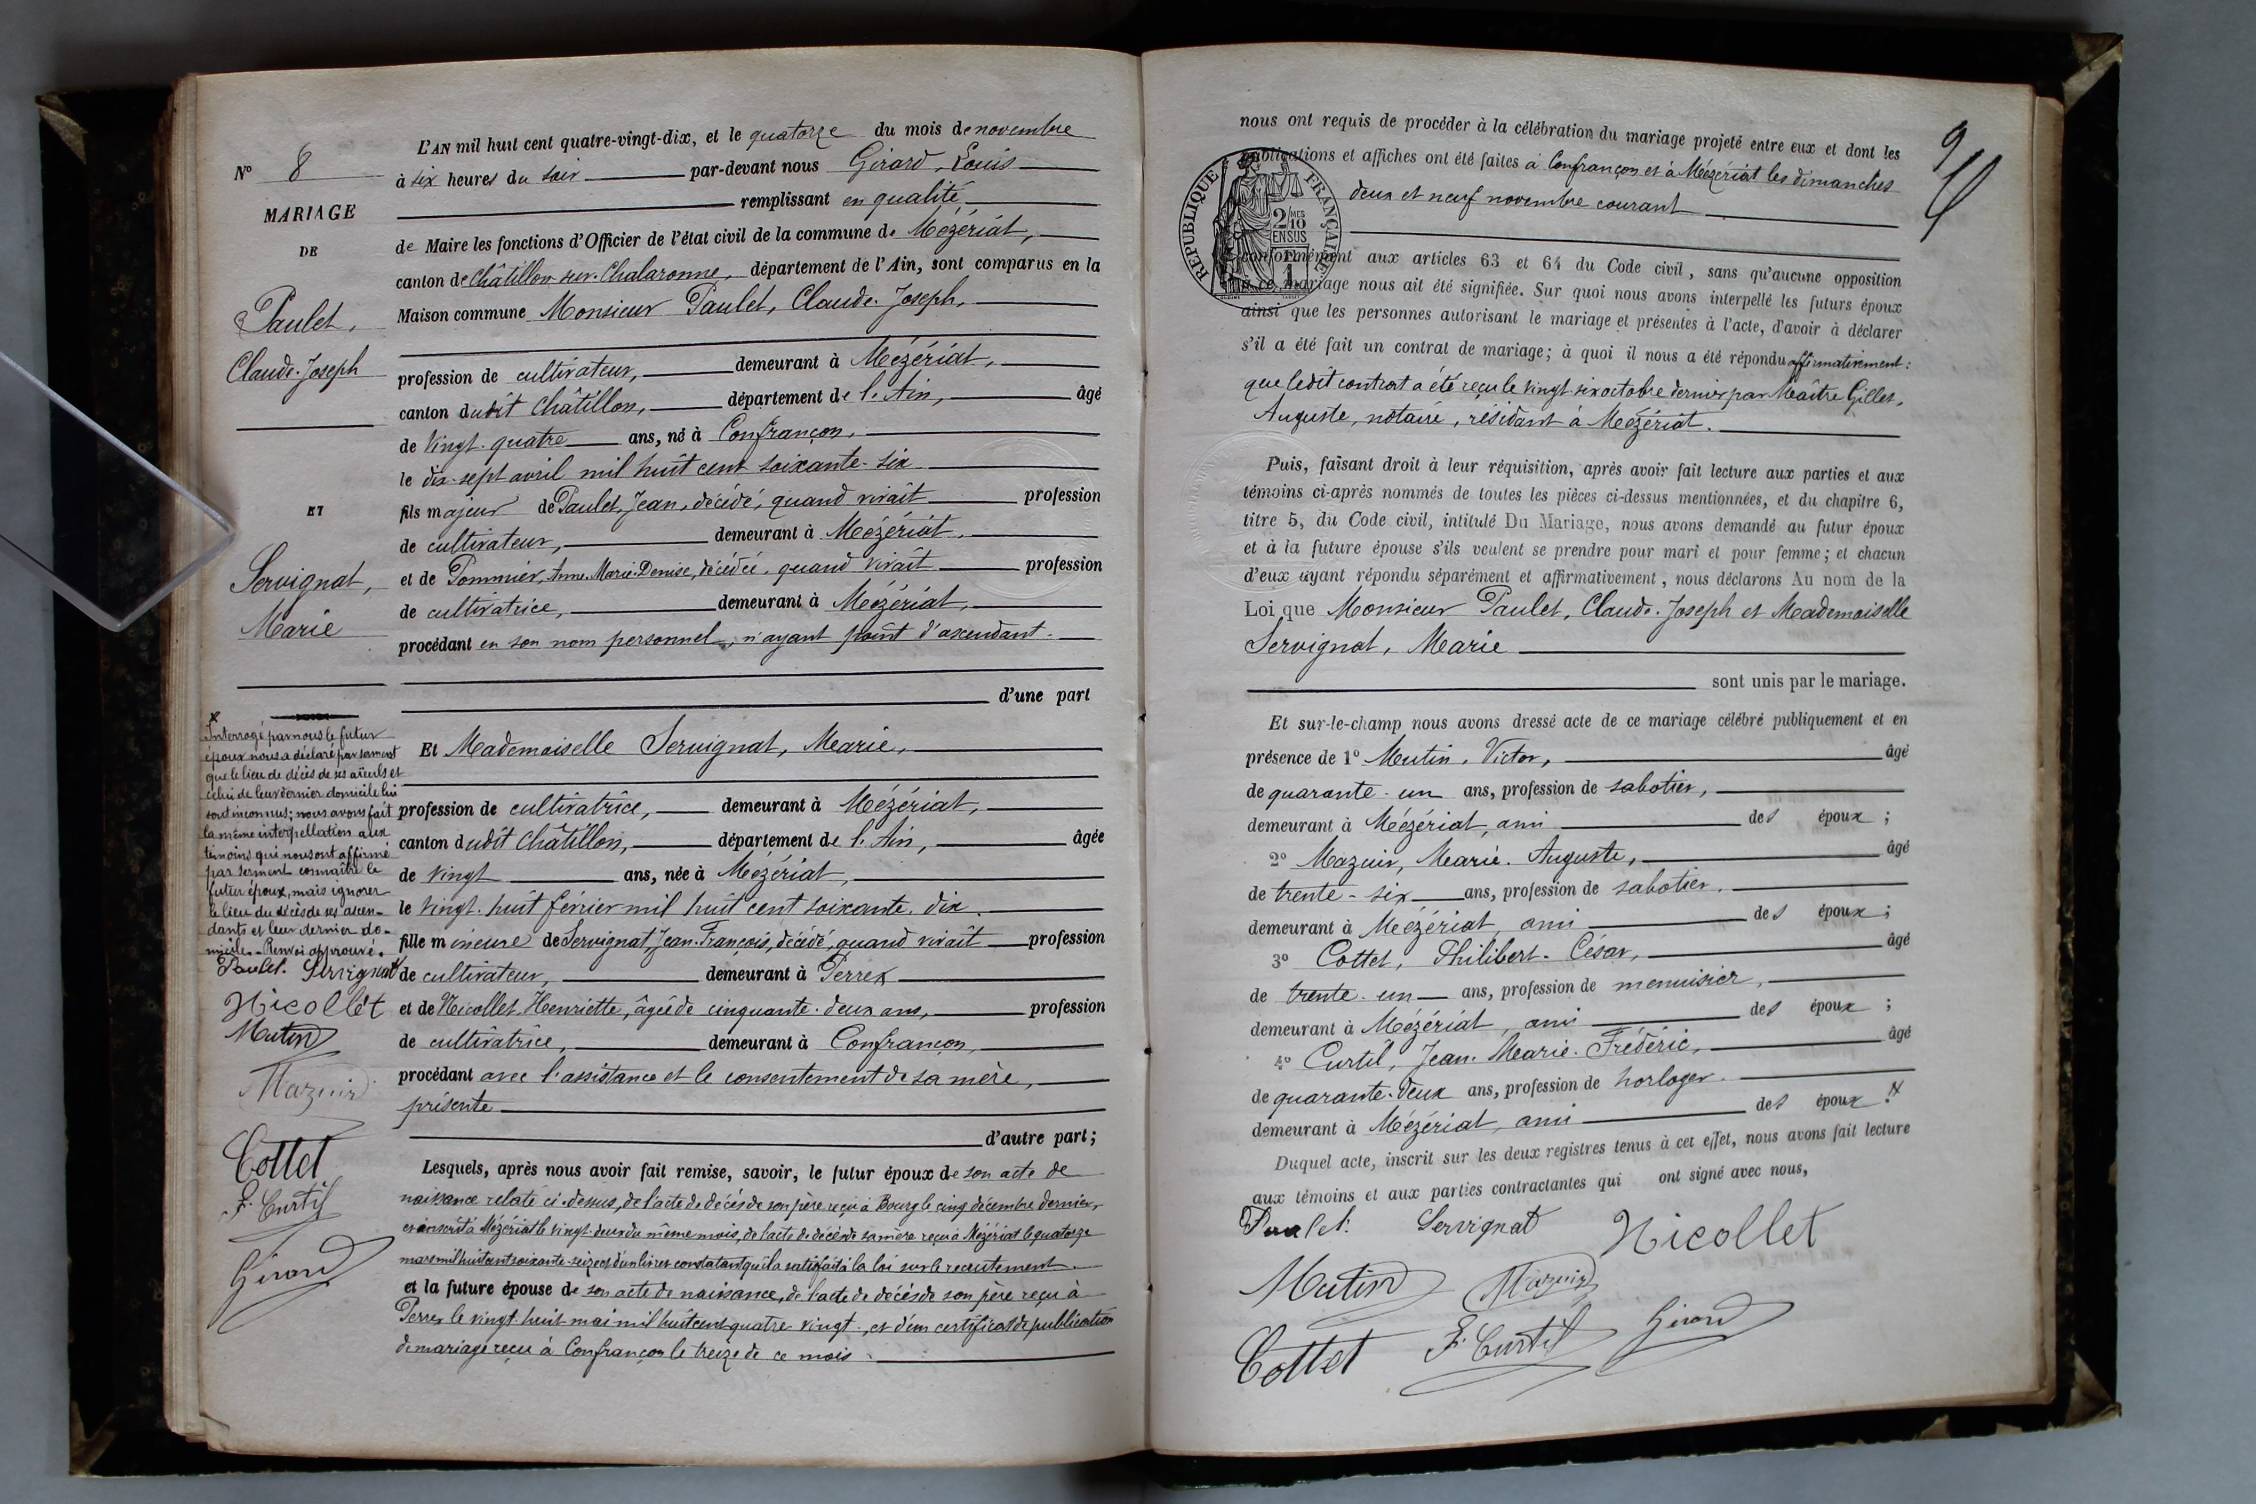 N° 8
MARIAGE
DE
Paulet,
Claude-Joseph
ET
Servignat,
Marie
x
Interrogé par nous le futur
époux nous a déclaré par serment
que le lieu de décès de ses aïeuls et
celui de leur dernier domicile lui
sont inconnus; nous avons fait
la même interpellation aux
témoins qui nous ont affirmé
par serment connaître le
futur époux, mais ignorer
le lieu du décès de ses ascen-
dants et leur dernier do-
micile. - Renvoi approuvé.
Paulet. Servignat
Nicollet
Mutin
Mazuir
Cottet
F. Curtil
Girard
L'AN mil huit cent quatre-vingt-dix, et le quatorze du mois de novembre
à six heures du soir par-devant nous Girard, Louis
remplissant en qualité
de Maire les fonctions d'Officier de l'état civil de la commune de Mézériat,
canton de Châtillon-sur-Chalaronne, département de l'Ain, sont comparus en la
Maison commune Monsieur Paulet, Claude-Joseph,
profession de cultivateur, demeurant à Mézériat,
canton dudit Châtillon, département de l'Ain, âgé
de vingt-quatre ans, né à Confrançon,
le dix-sept avril mil huit cent soixante-six
fils majeur de Paulet, Jean, décédé, quand vivait profession
de cultivateur, demeurant à Mézériat,
et de Pommier, Anne-Marie-Denise, décédée, quand vivait profession
de cultivatrice, demeurant à Mézériat,
procédant en son nom personnel, n'ayant point d'ascendant.
d'une part
Et Mademoiselle Servignat, Marie,
profession de cultivatrice, demeurant à Mézériat,
canton dudit Châtillon, département de l'Ain, âgée
de vingt ans, née à Mézériat,
le vingt-huit février mil huit cent soixante-dix
fille mineure de Servignat, Jean-François, décédé, quand vivait profession
de cultivateur, demeurant à Perrex
et de Nicollet, Henriette, âgée de cinquante-deux ans, profession
de cultivatrice, demeurant à Confrançon,
procédant avec l'assistance et le consentement de sa mère,
présente
d'autre part;
Lesquels, après nous avoir fait remise, savoir, le futur époux de son acte de
naissance relaté ci-dessus, de l'acte de décès de son père reçu à Bourg le cinq décembre dernier,
et inscrit à Mézériat le vingt-deux du même mois, de l'acte de décès de sa mère reçu à Mézériat le quatorze
mars mil huit cent soixante-seize et d'un livret constatant qu'il a satisfait à la loi sur le recrutement
et la future épouse de son acte de naissance, de l'acte de décès de son père reçu à
Perrex le vingt-huit mai mil huit cent quatre-vingt, et d'un certificat de publication
de mariage reçu à Confrançon le treize de ce mois
9
nous ont requis de procéder à la célébration du mariage projeté entre eux et dont les
publications et affiches ont été faites à Confrançon et à Mézériat les dimanches
deux et neuf novembre courant
RÉPUBLIQUE FRANÇAISE
2/10MES
EN SUS
conformément aux articles 63 et 64 du Code civil, sans qu'aucune opposition
à ce mariage nous ait été signifiée. Sur quoi nous avons interpellé les futurs époux
ainsi que les personnes autorisant le mariage et présentes à l'acte, d'avoir à déclarer
s'il a été fait un contrat de mariage; à quoi il nous a été répondu affirmativement:
que ledit contrat a été reçu le vingt-six octobre dernier par Maître Gillet,
Auguste, notaire, résidant à Mézériat.
Puis, faisant droit à leur réquisition, après avoir fait lecture aux parties et aux
témoins ci-après nommés de toutes les pièces ci-dessus mentionnées, et du chapitre 6,
titre 5, du Code civil, intitulé Du Mariage, nous avons demandé au futur époux
et à la future épouse s'ils veulent se prendre pour mari et pour femme; et chacun
d'eux ayant répondu séparément et affirmativement, nous déclarons Au nom de la
Loi que Monsieur Paulet, Claude-Joseph et Mademoiselle
Servignat, Marie
sont unis par le mariage.
Et sur-le-champ nous avons dressé acte de ce mariage célébré publiquement et en
présence de 1° Mutin, Victor, âgé
de quarante-un ans, profession de sabotier,
demeurant à Mézériat, ami des époux;
2° Mazuir, Marie-Auguste, âgé
de trente-six ans, profession de sabotier,
demeurant à Mézériat, ami des époux;
3° Cottet, Philibert-César, âgé
de trente-un ans, profession de menuisier,
demeurant à Mézériat, ami des époux;
4° Curtil, Jean-Marie-Frédéric, âgé
de quarante-deux ans, profession de horloger
demeurant à Mézériat, ami des époux. x
Duquel acte, inscrit sur les deux registres tenus à cet effet, nous avons fait lecture
aux témoins et aux parties contractantes qui ont signé avec nous,
Paulet. Servignat Nicollet
Mutin Mazuir
Cottet F. Curtil Girard